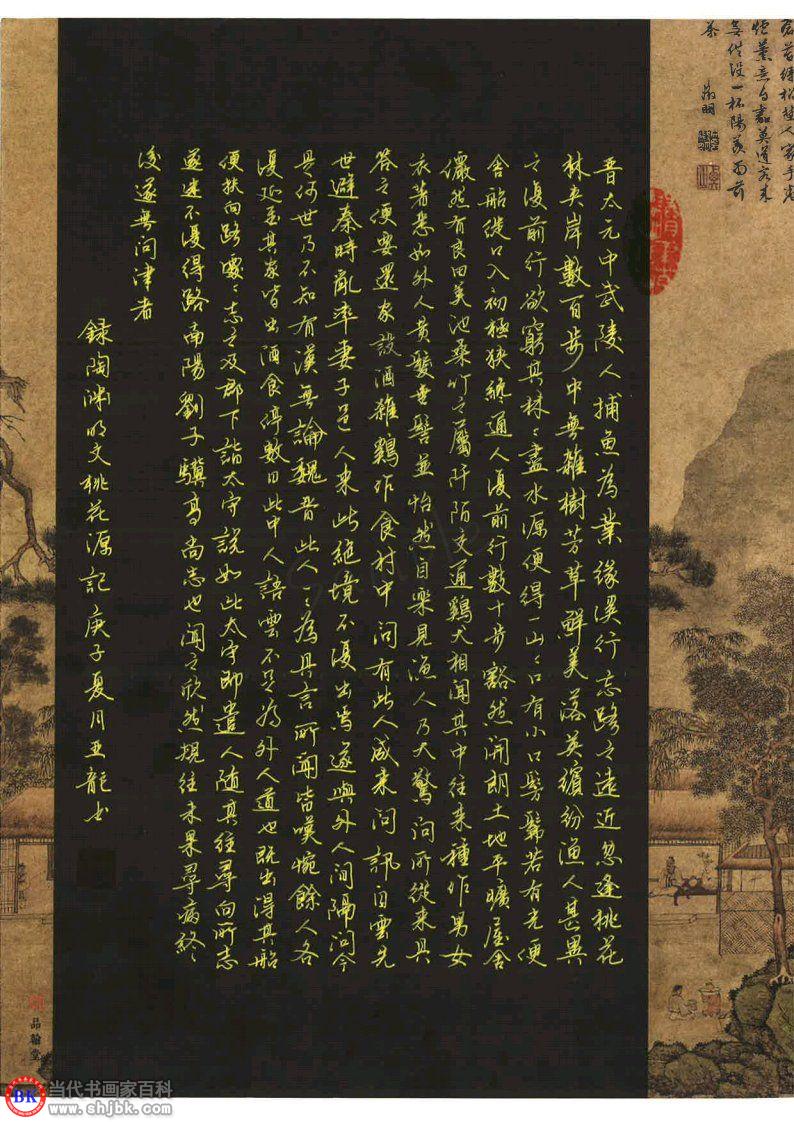 晋太元中武陵人捕魚為業緣溪行忘路之遠近忽逢桃花
林夾岸數百步中無雜樹芳草鮮美落英繽紛漁人甚異
之復前行欲窮其林〻盡水源便得一山〻口有小口髣髴若有光便
舍船從口入初極狹纔通人復前行數十步豁然開朗土地平曠屋舍
儼然有良田美池桑竹之屬阡陌交通鷄犬相聞其中往來種作男女
衣著悉如外人黄髮垂髫並怡然自樂見漁人乃大驚問所從來具
答之便要還家設酒雜鷄作食村中問有此人咸來問訊自雲先
世避秦時亂率妻子邑人來此絶境不復出焉遂與外人間隔問今
是何世乃不知有漢無論魏晋此人一一為具言所聞皆嘆惋餘人各
復延至其家皆出酒食停數日此中人語雲不足為外人道也既出得其船
便扶向路處〻志之及郡下詣太守説如此太守即遣人随其往尋向所志
遂迷不復得路南陽劉子驥高尚志也聞之欣然規往未果尋病終
後遂無問津者
録陶淵明文桃花源記庚子夏月亚龍书
品翰堂
BK 当代书画家百科
www.shjbk.com